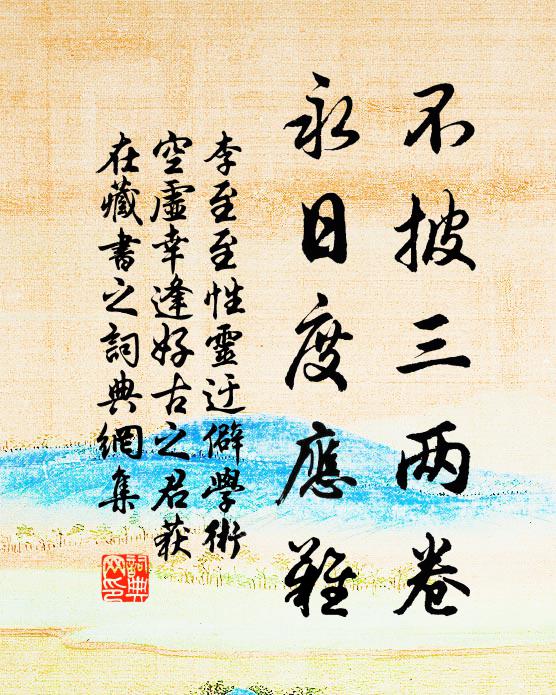 不披三两卷
永日度應難
李至至性靈迂僻學術
空虛幸逢好古之君获
在藏書之詞典網集
詞典
网印